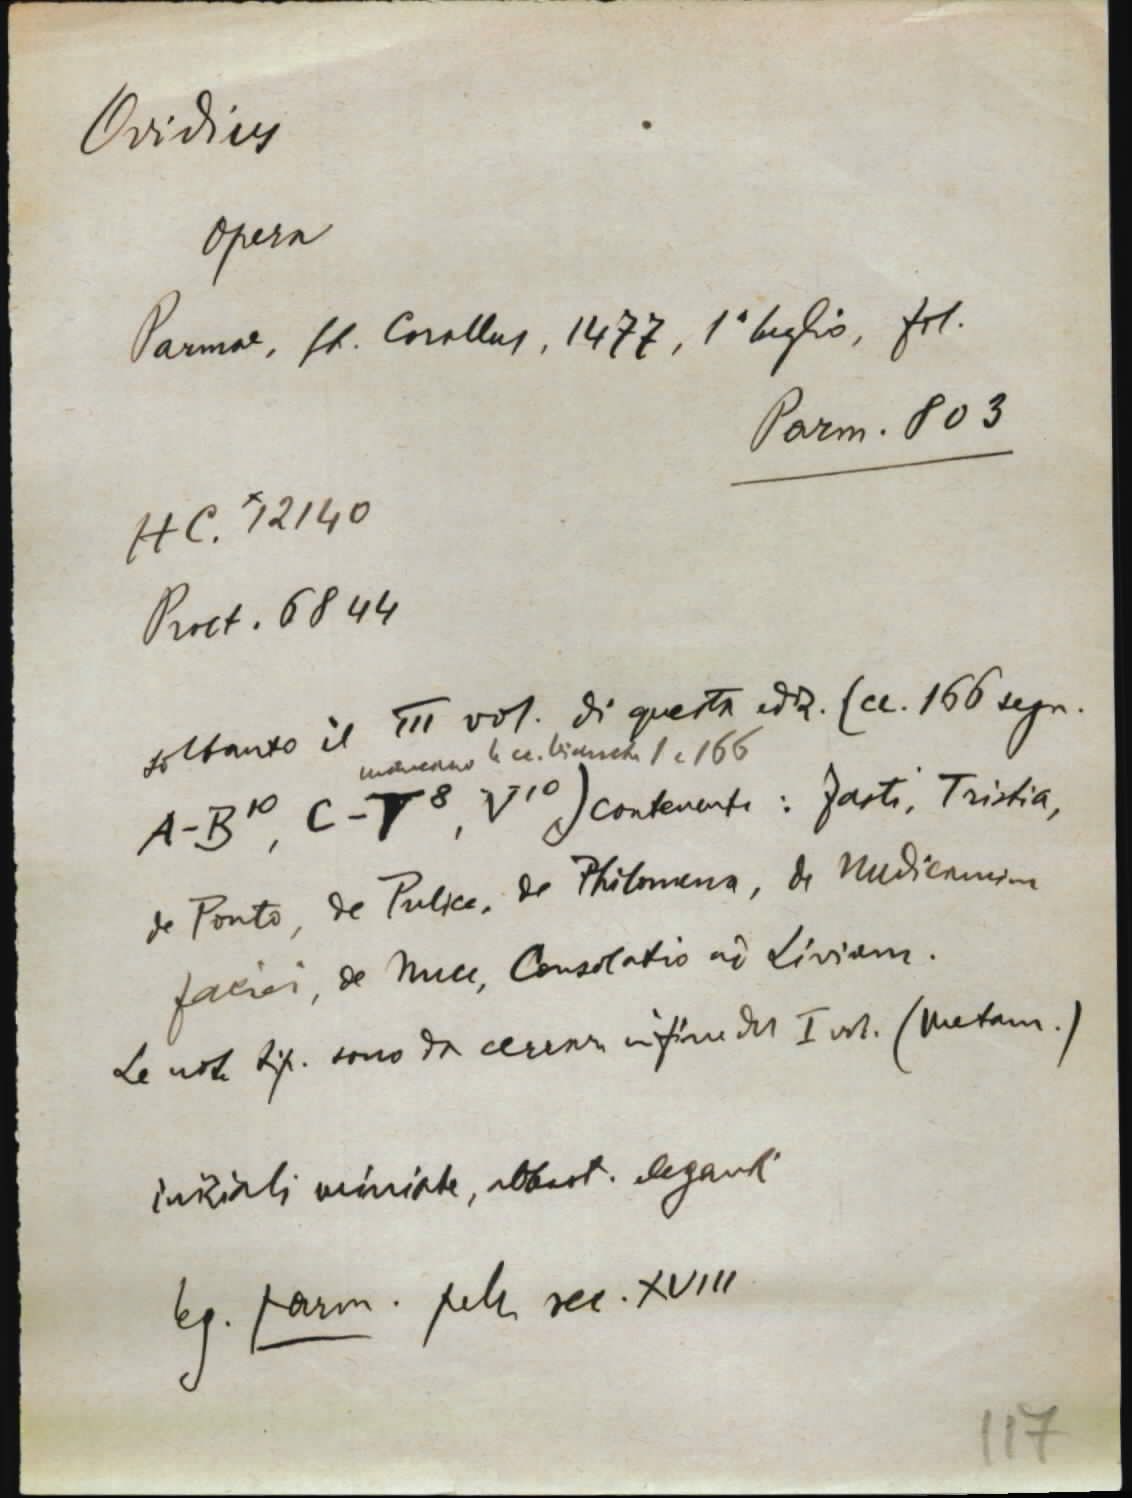 Ovidius
Opera
Parmae, St. Corallus, 1477, 1° luglio, fol.
Parm. 803
HC. *12140
Proct. 6844
soltanto il III vol. di questa ediz. (cc. 166 segn.
mancano le cc. bianche 1 e 166
A-B10, C-T8, V10) contenente: Fasti, Tristia,
de Ponto, de Pulice, de Philomena, de Medicamine
faciei, de Nuce, Consolatio ad Liviam.
Le note tip. sono da cercare in fine del I vol. (Metam.)
iniziali miniate, abbast. eleganti
leg. parm. pelle sec. XVIII
117